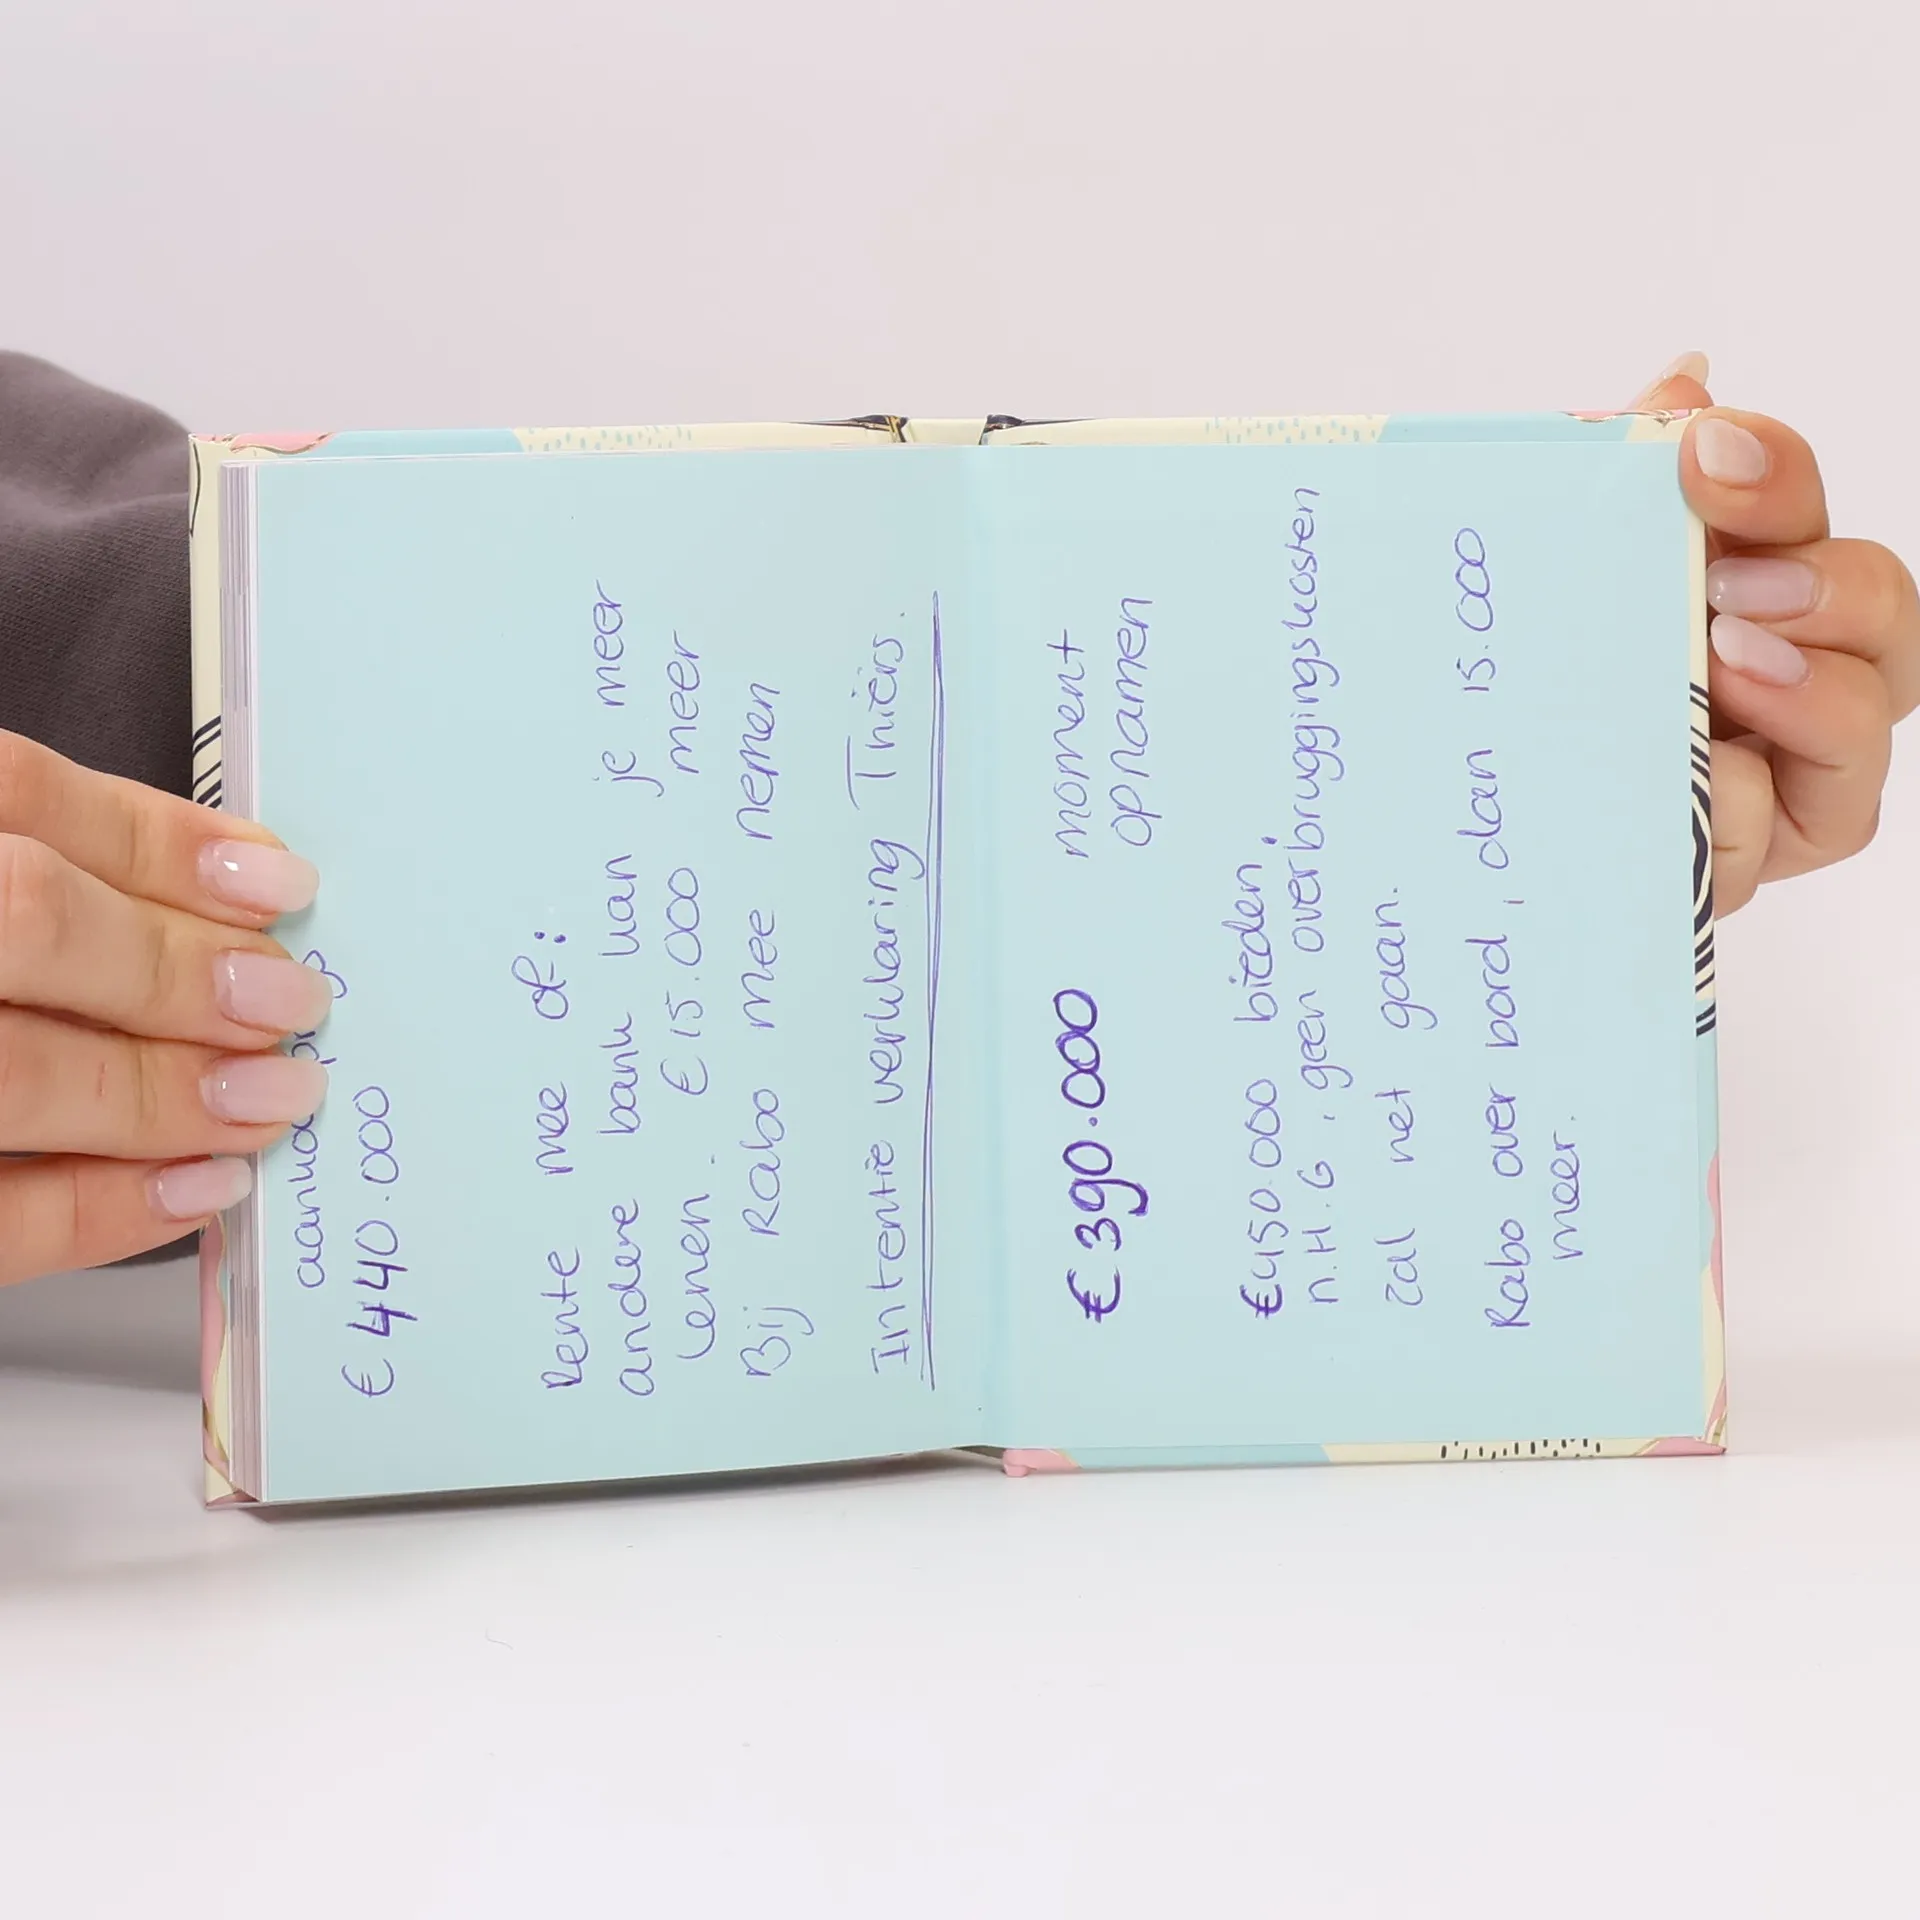 € 440.000
Rente mee of:
andere bank kan je meer
Lenen. € 15.000 meer
Bij Rabo mee nemen
Intentie verklaring Thiërs.
€ 390.000 moment
opnamen
€450.000 bieden.
n.H.G, geen overbruggingskosten
zal net gaan.
Rabo over bord, dan 15.000
meer.